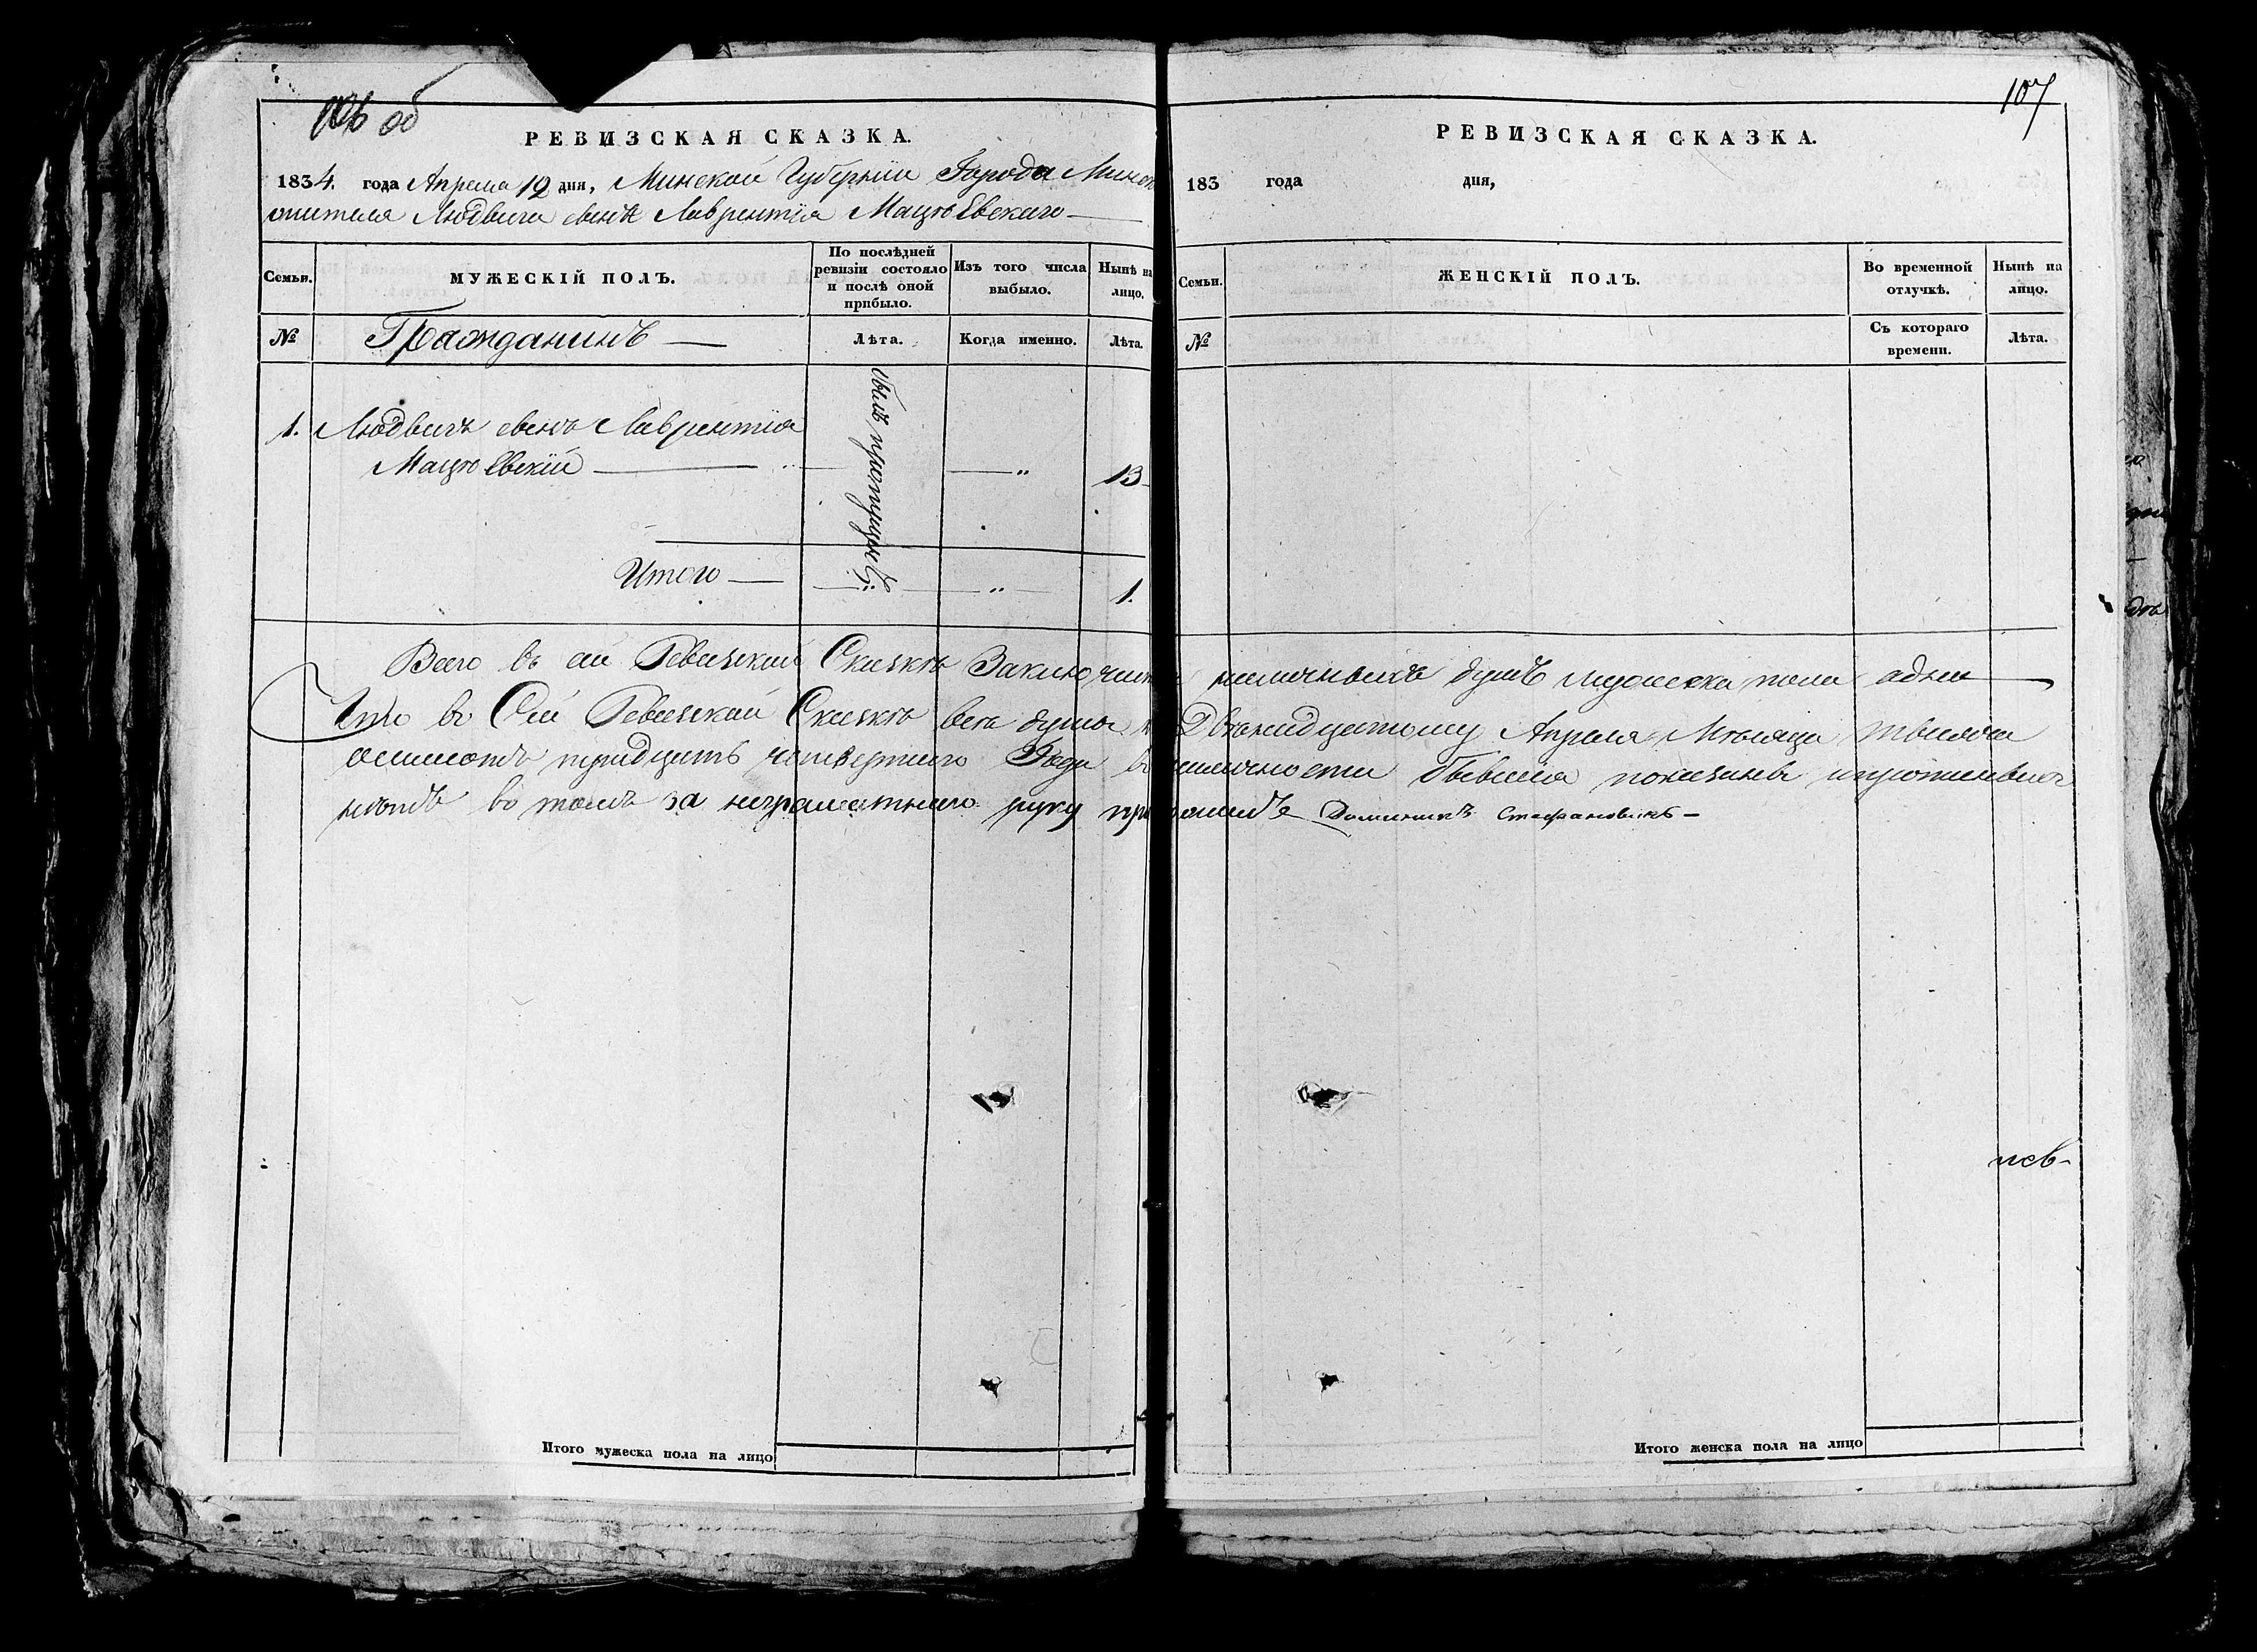 106 об
РЕВИЗСКАЯ СКАЗКА.
1834. года Апреля 12 дня, Минской Губернии Города Минск
жителя Людвига сынъ Лаврентія Мацюевскаго
Семьи.
МУЖЕСКІЙ ПОЛЪ.
По послѣдней ревизіи состояло и послѣ оной прибыло.
Изъ того числа выбыло.
Нынѣ на лицо.
№
Гражданинъ
Лѣта.
Когда именно.
Лѣта.
1. Людвигъ сынъ Лаврентія
Мацюевскій
былъ пропущенъ
"
13
Итого
"
1.
Всего въ сей Ревизской Сказкѣ Заключ
Что въ Сей Ревизской Сказкѣ вся душа к
осмисотъ тридцать четвертаго Года въ
нѣтъ во томъ за неграматнаго руку при
Итого мужеска пола на лицо
107
РЕВИЗСКАЯ СКАЗКА.
183 года дня,
Семьи.
ЖЕНСКІЙ ПОЛЪ.
Во временной отлучкѣ.
Нынѣ на лицо.
№
Съ котораго времени.
Лѣта.
наличныхъ душъ мужеска пола одна
Двѣнадцатому Апреля Мѣсяца тысяча
наличности бывшая показана и прописныхъ
ложилъ Доминикъ Стефановичъ
Итого женска пола на лицо